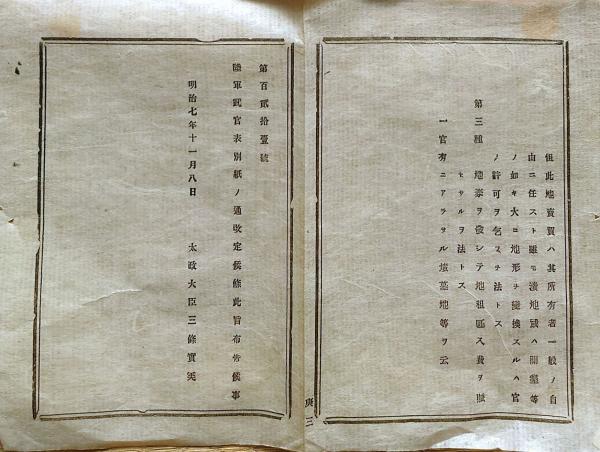 但此地賣買ハ其所有者一般ノ自
由ニ任スト雖モ潰地或ハ開墾等
ノ如キ大ニ地形ヲ變換スルハ官
ノ許可ヲ乞フヲ法トス
第三種 地券ヲ發シテ地租區入費ヲ賦
セサルヲ法トス
一官有ニアラサル墳墓地等ヲ云
第百貳拾壹號
陸軍武官表別紙ノ通改定候條此旨布告候事
明治七年十一月八日 太政大臣三條實美
三